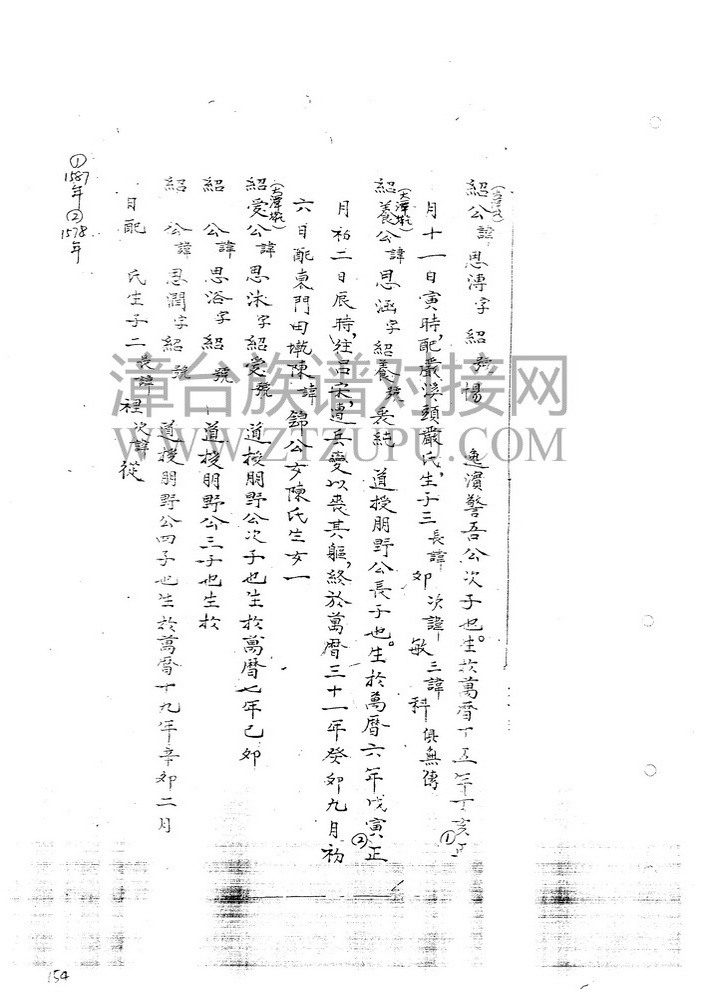 紹公諱思溥字紹 號場 逸濱警吾公次子也。生於萬曆十五年丁亥①正
月十一日寅時，配嚴溪頭嚴氏，生子三 長諱 夘 次諱 敏 三諱 科 俱無傳
紹養公諱思涵字紹養號 純 道授朋野公長子也。生於萬曆六年戊寅②正
月初二日辰時，往呂宋，遭兵變以喪其軀，終於萬曆三十一年癸夘九月初
六日配東門田墘陳諱錦公女陳氏生女一
紹愛公諱思沐字紹愛號 道授朋野公次子也生於萬曆七年己夘
紹 公諱思浴字紹 號 道授朋野公三子也生於
紹 公諱思潤字紹 號 道授朋野公四子也生於萬曆十九年辛夘二月
日配 氏生子二 長諱 裡 次諱 從
①1587年 ②1578年
154
漳台族谱对接网
WWW.ZTZUPU.COM